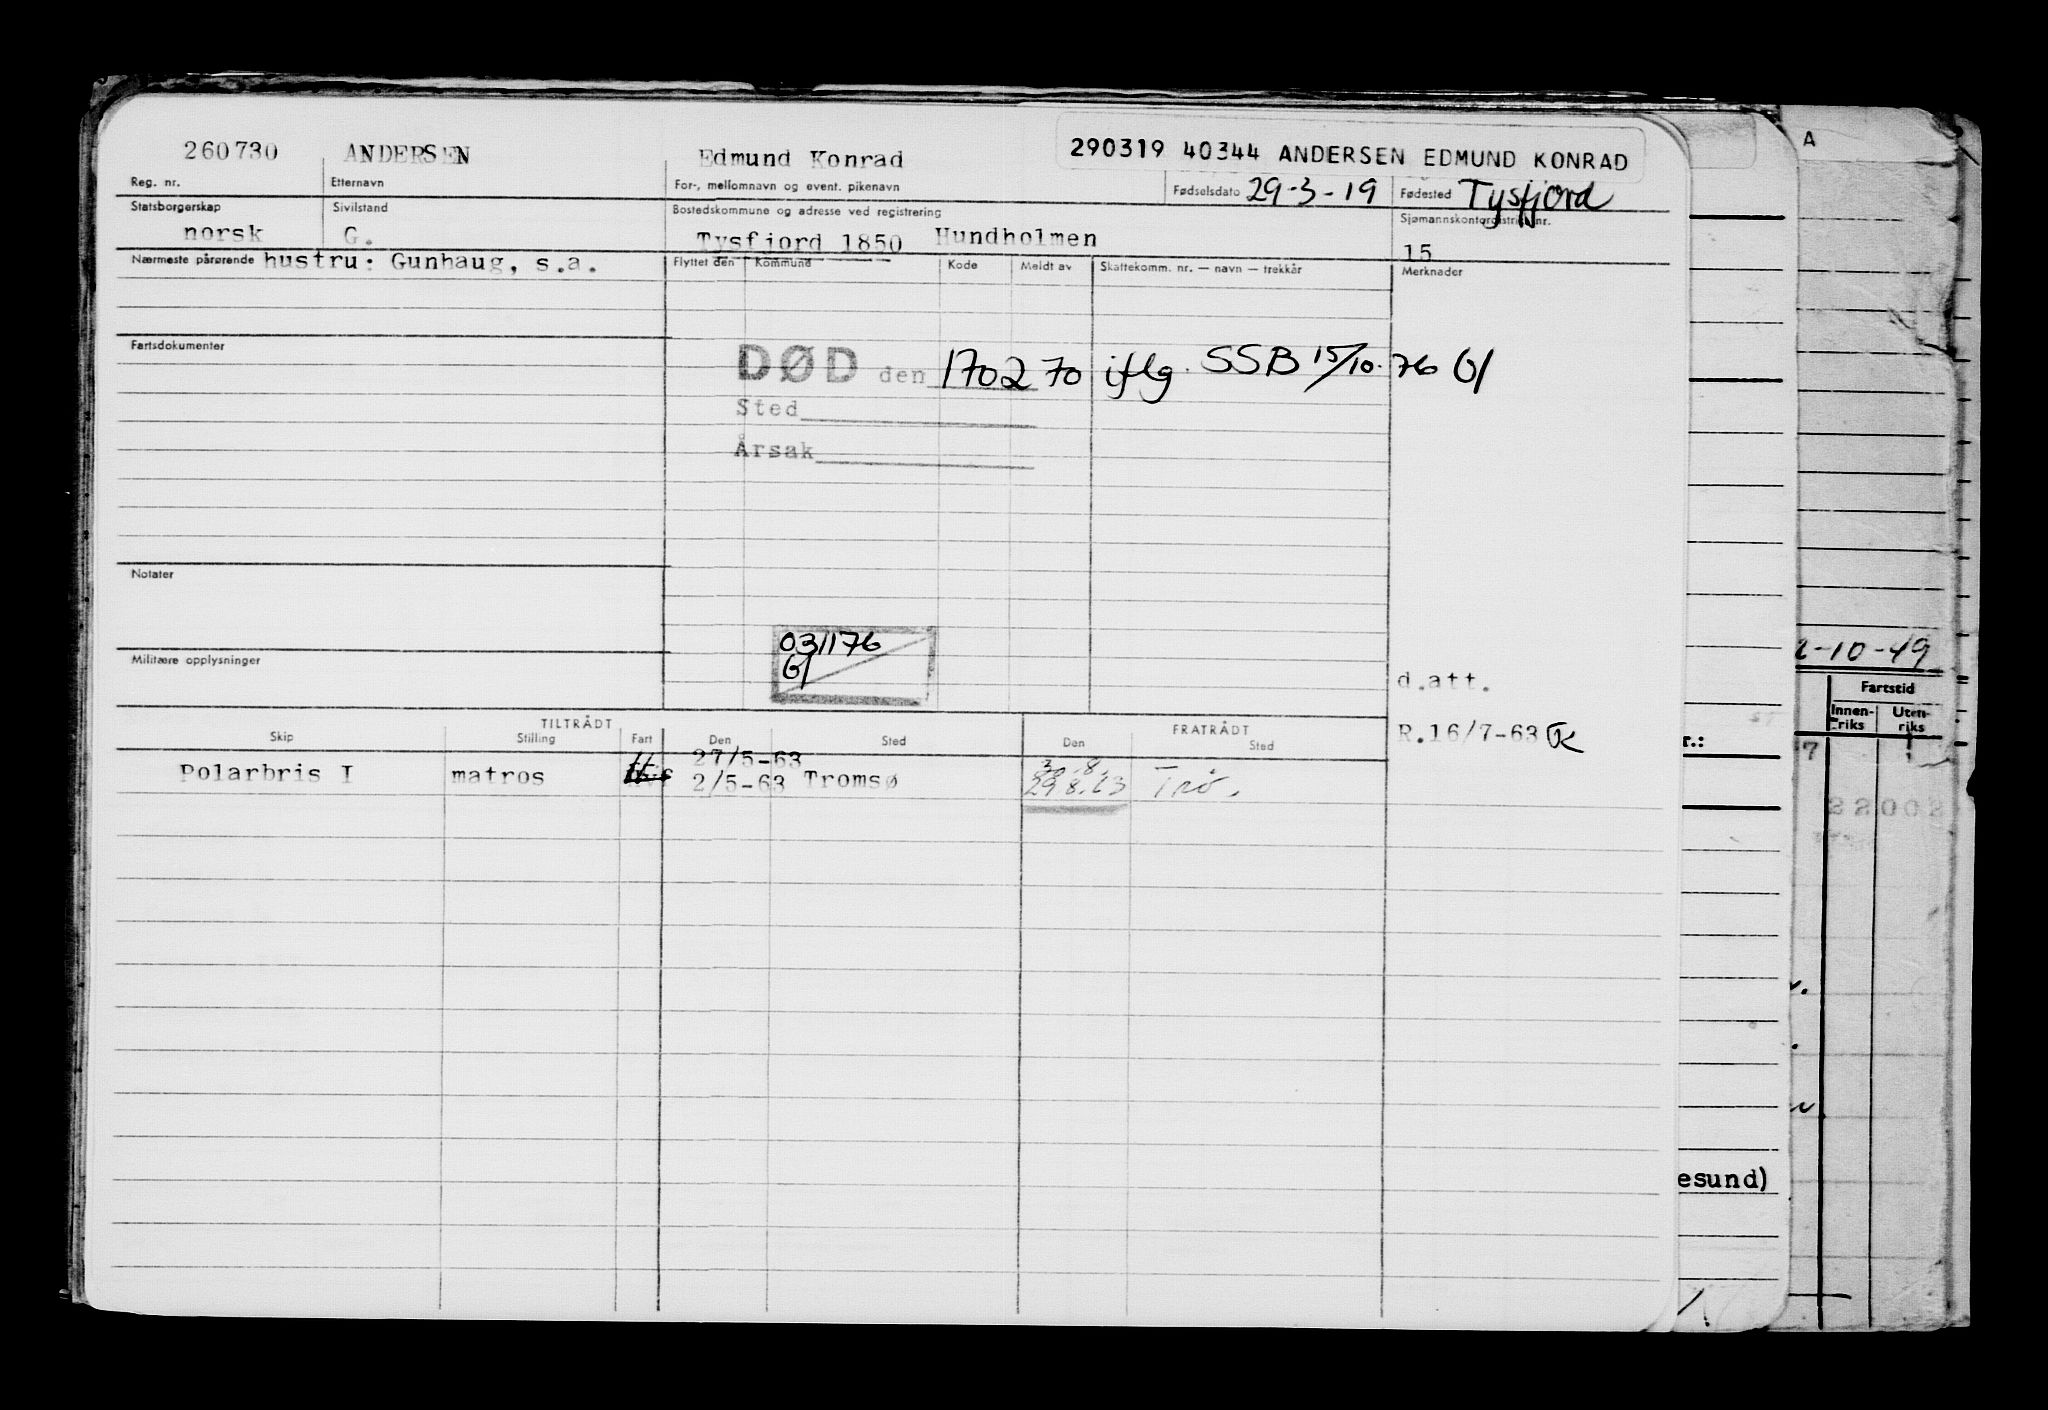 260730 ANDERSEN Edmund Konrad 290319 40344 ANDERSEN EDMUND KONRAD
Reg. nr. Etternavn For-, mellomnavn og event. pikenavn Fødselsdato 29-3-19 Fødested Tysfjord
Statsborgerskap Sivilstand Bostedskommune og adresse ved registrering Sjømannskontor/distrikt nr.
norsk G. Tysfjord 1850 Hundholmen 15
Nærmeste pårørende hustru: Gunhaug, s.a. Flyttet den Kommune Kode Meldt av Skattekomm. nr. — navn — trekkår Merknader
Fartsdokumenter
DØD den 170270 iflg. SSB 15/10-76
Sted
Årsak
Notater
031176
Militære opplysninger
d.att.
R.16/7-63
TILTRÅDT FRATRÅDT
Skip Stilling Fart Den Sted Den Sted
27/5-63 30.8.
Polarbris I matros 2/5-63 Tromsø 29.8.63 Trø.
A
2-10-49
Fartstid
Innen-riks Uten-riks
r.: 7
22002
esund)